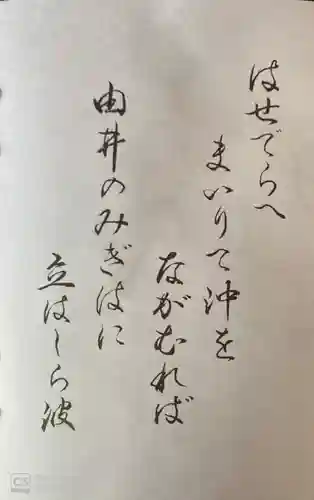 はせでらへ
まいりて沖を
ながむれば
由井のみぎはに
立はしら波
CS